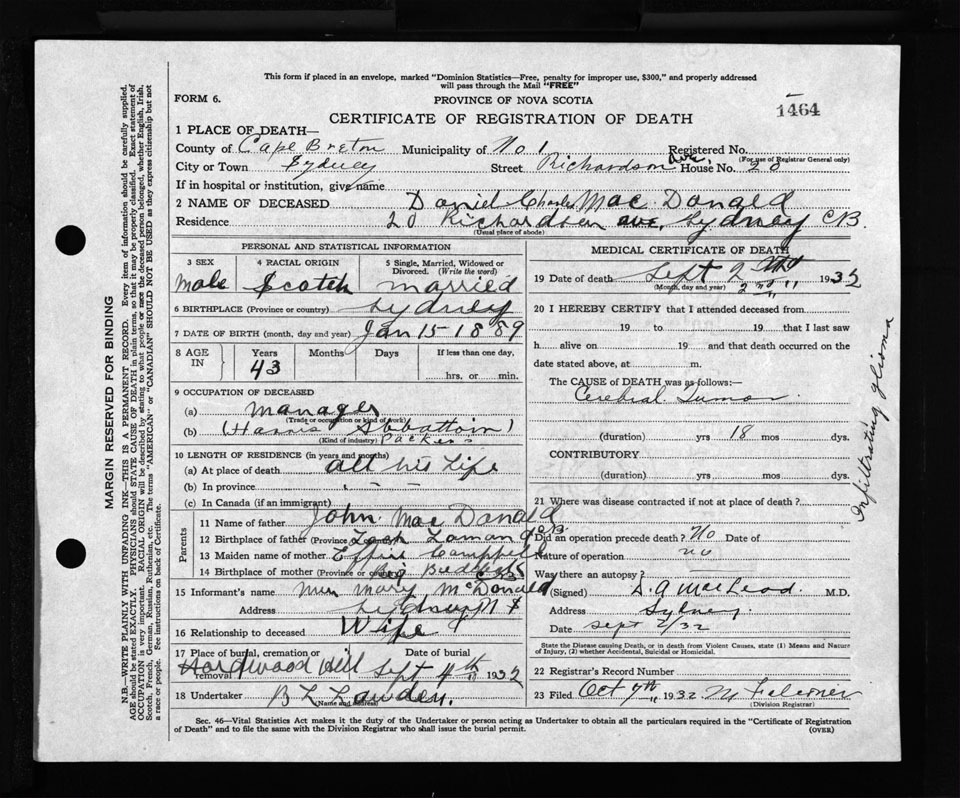 This form if placed in an envelope, marked "Dominion Statistics—Free, penalty for improper use, $300," and properly addressed
will pass through the Mail "FREE"
FORM 6.
PROVINCE OF NOVA SCOTIA
1464
CERTIFICATE OF REGISTRATION OF DEATH
1 PLACE OF DEATH—
County of Cape Breton Municipality of No 1 Registered No.
(For use of Registrar General only)
City or Town Sydney Street Richardson Ave, House No. 20
If in hospital or institution, give name
2 NAME OF DECEASED Daniel Charles Mac Donald
Residence 20 Richardson ave, Sydney CB.
(Usual place of abode)
PERSONAL AND STATISTICAL INFORMATION
3 SEX 4 RACIAL ORIGIN 5 Single, Married, Widowed or Divorced. (Write the word)
Male Scotch married
6 BIRTHPLACE (Province or country) Sydney
7 DATE OF BIRTH (month, day and year) Jan 15 1889
8 AGE IN Years Months Days If less than one day,
43 hrs. or min.
9 OCCUPATION OF DECEASED
(a) manager
(Trade or occupation or kind of work)
(b) (Harris Abattoir)
(Kind of industry) Packers
10 LENGTH OF RESIDENCE (in years and months)
(a) At place of death all his life
(b) In province
(c) In Canada (if an immigrant)
Parents
11 Name of father John Mac Donald
12 Birthplace of father (Province or country) Loch Lomand CB.
13 Maiden name of mother Effie Campbell
14 Birthplace of mother (Province or country) Big CB
15 Informant's name Mrs Mary McDonald
Address Sydney N S
16 Relationship to deceased Wife
17 Place of burial, cremation or removal Date of burial
Hardwood Hill Sept 4th 1932
18 Undertaker
(Name and address)
MEDICAL CERTIFICATE OF DEATH
19 Date of death Sept 2nd 1932
(Month, day and year) 2nd
20 I HEREBY CERTIFY that I attended deceased from
19 to 19 that I last saw
h alive on 19 and that death occurred on the
date stated above, at m.
The CAUSE of DEATH was as follows:—
Cerebral Tumor.
(duration) yrs 18 mos dys.
CONTRIBUTORY
(duration) yrs mos dys.
Infiltrating glioma
21 Where was disease contracted if not at place of death?
Did an operation precede death? No Date of
Nature of operation no
Was there an autopsy?
(Signed) D. A MacLeod. M.D.
Address Sydney.
Date Sept 2/32
State the Disease causing Death, or in death from Violent Causes, state (1) Means and Nature
of Injury, (2) whether Accidental, Suicidal or Homicidal.
22 Registrar's Record Number
23 Filed Oct 7th 1932 M Falconer
(Division Registrar)
Sec. 46—Vital Statistics Act makes it the duty of the Undertaker or person acting as Undertaker to obtain all the particulars required in the "Certificate of Registration
of Death" and to file the same with the Division Registrar who shall issue the burial permit.
(OVER)
MARGIN RESERVED FOR BINDING
N.B.—WRITE PLAINLY WITH UNFADING INK—THIS IS A PERMANENT RECORD. Every item of information should be carefully supplied.
AGE should be stated EXACTLY. PHYSICIANS should STATE CAUSE OF DEATH in plain terms, so that it may be properly classified. Exact statement of
OCCUPATION is very important. RACIAL ORIGIN will be described by stating to what people or race the deceased person belonged, whether English, Irish,
Scotch, French, German, Russian, Ruthenian, etc. The terms "AMERICAN" or "CANADIAN" SHOULD NOT BE USED as they express citizenship but not
a race or people. Fee instructions on back of Certificate.